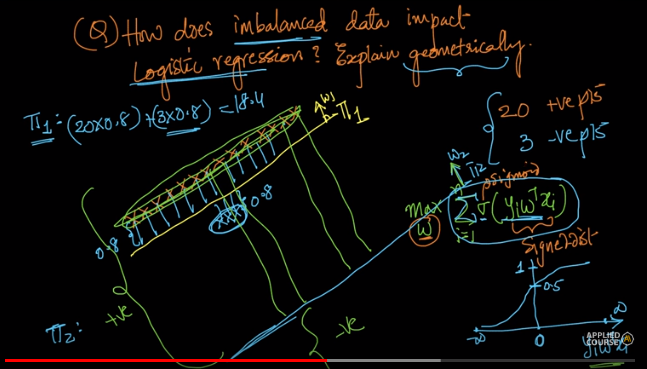 (Q) How does imbalanced data impact
Logistic regression? Explain geometrically.
π1: (20×0.8) + (3×0.8) = 18.4
w1
π1
20 +ve pts
3 -ve pts
w2
π2
sigmoid
Max
w
n
Σ σ(yi wᵀxi)
i=1
Signed dist
0.8
0.8
xxx
+ve
-ve
π2:
1
0.5
-∞
0
∞
yi wᵀxi
APPLIED
COURSE